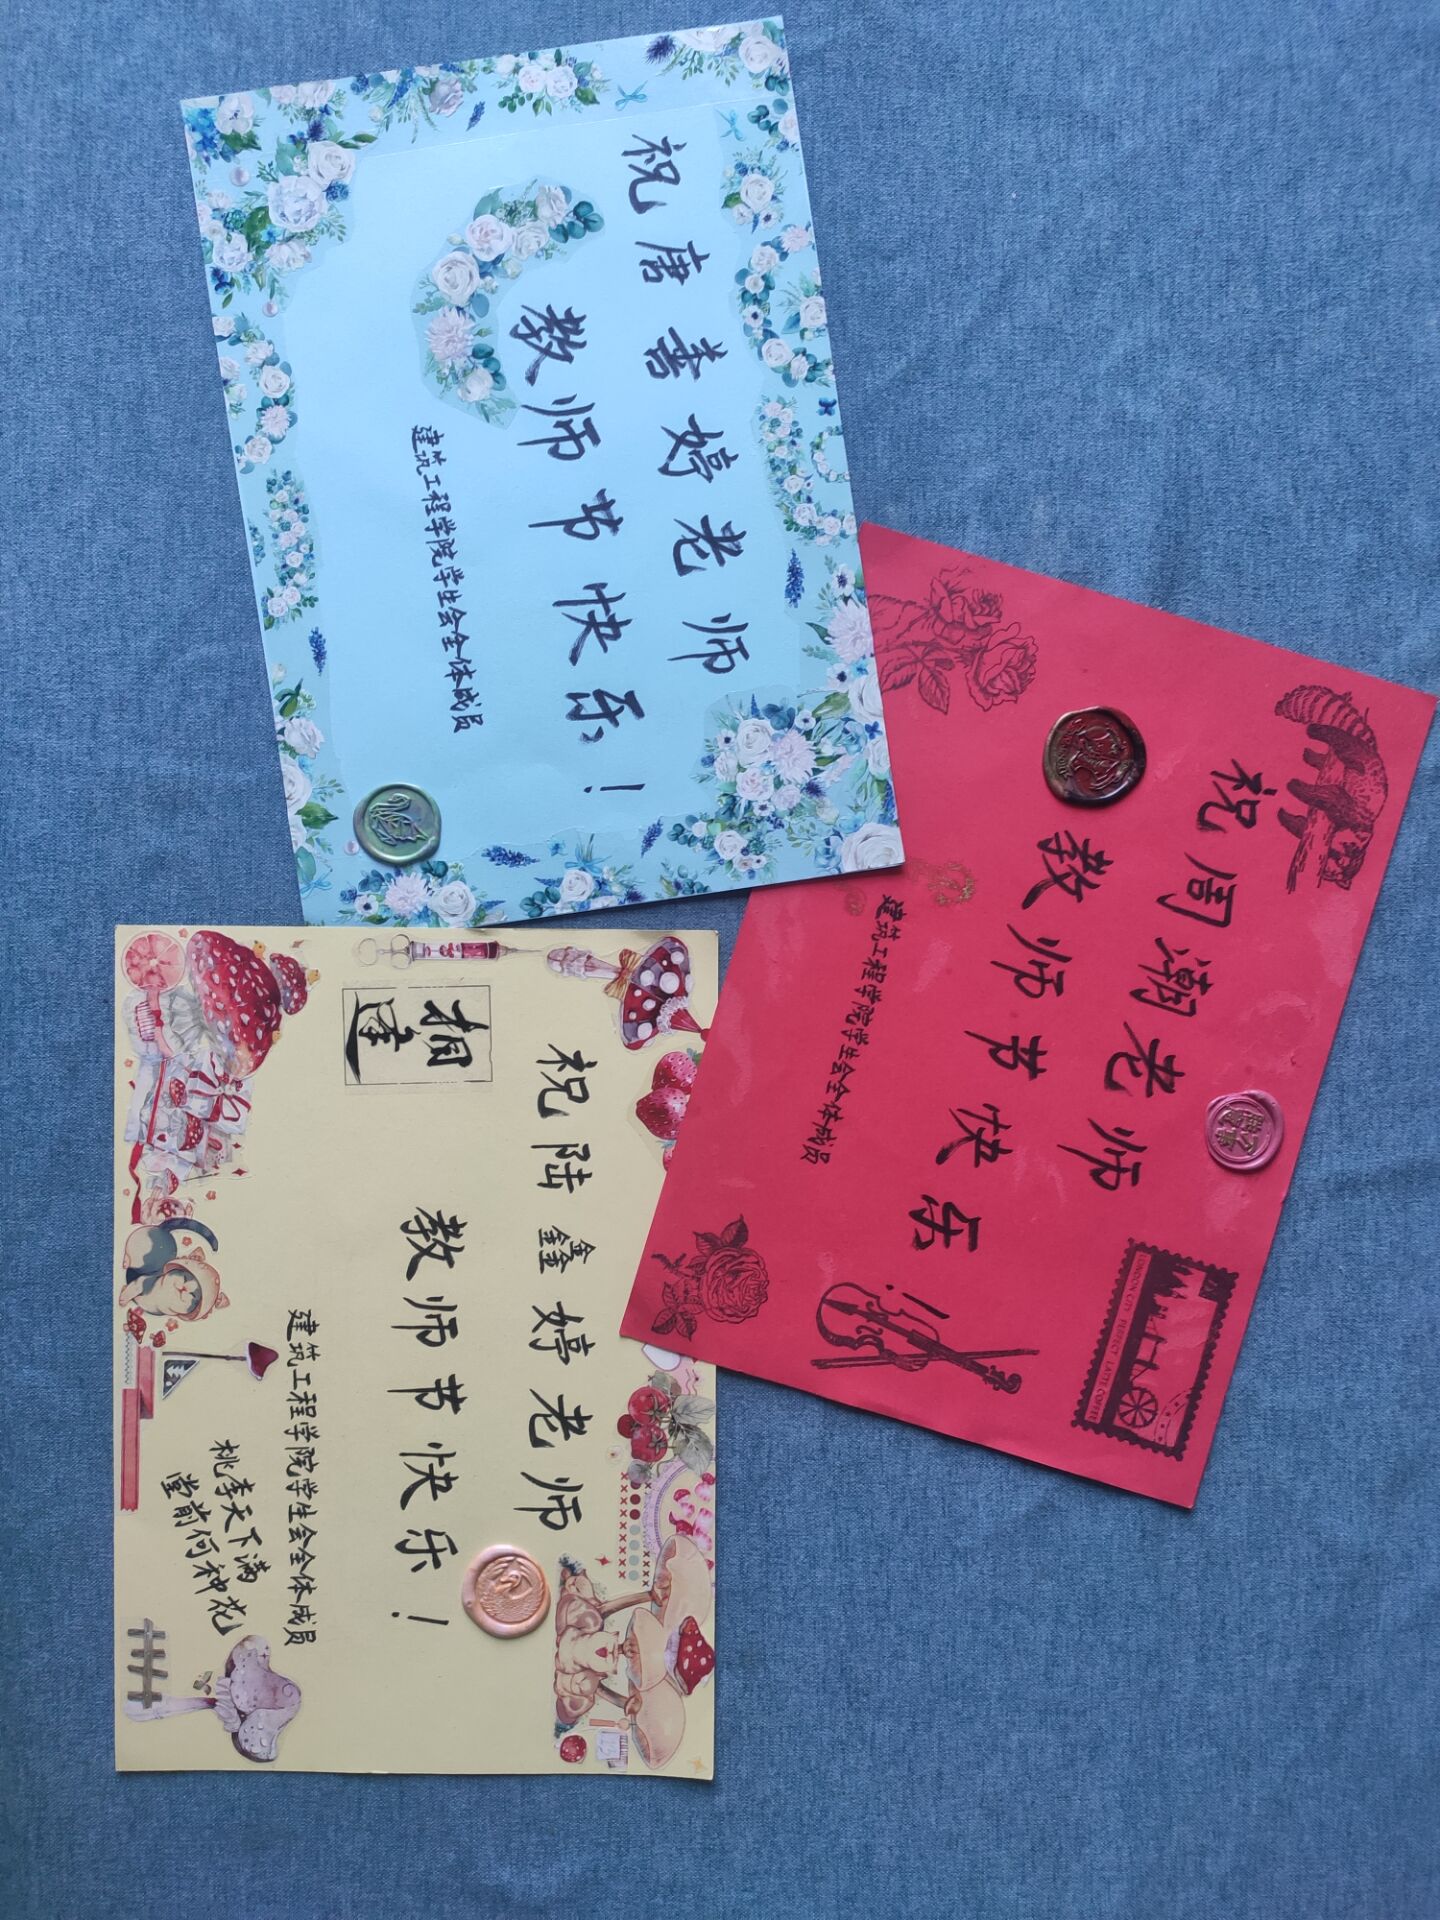 祝唐善婷老师
教师节快乐！
建筑工程学院学生会全体成员
祝周潮老师
教师节快乐！
建筑工程学院学生会全体成员
LONDON CITY PERFECT LATTE COFFEE
相逢
祝陆鑫婷老师
教师节快乐！
建筑工程学院学生会全体成员
桃李天下满
堂前何种花